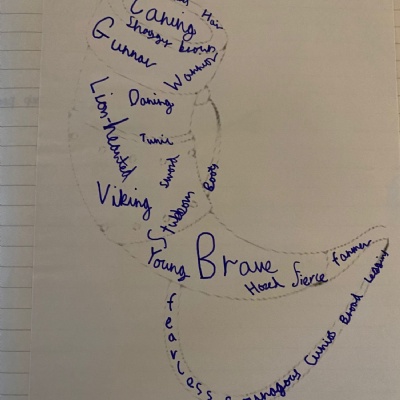 Hair
Caring
Shaggy brown
Gunnar
Warrior
Daring
Lion-hearted
Tunic
Sword
Boots
Viking
Stubborn
Young
Brave
Hazel fierce
farmer
fearless
Curios
Broad